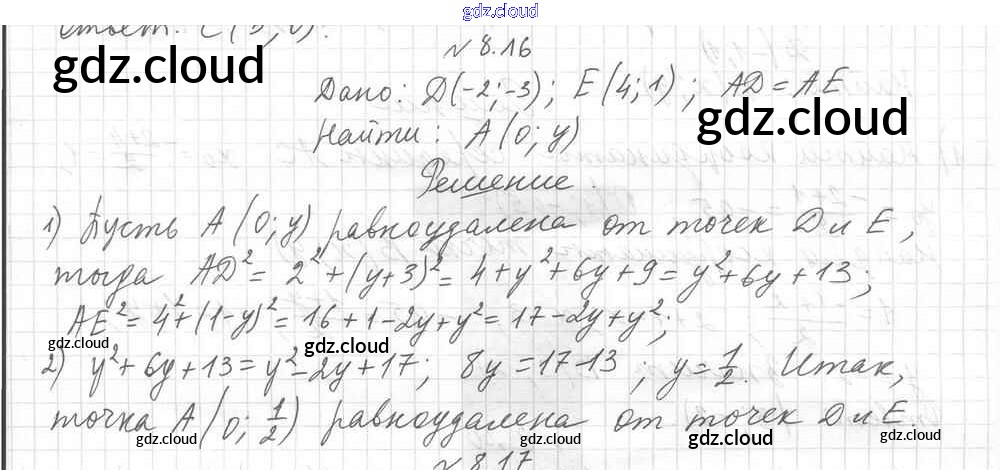 gdz.cloud
Ответ: С(3; 0).
N 8.16
gdz.cloud
Дано: D(-2; -3); E(4; 1); AD = AE
gdz.cloud
Найти: A(0; y)
Решение.
1) Пусть A(0; y) равноудалена от точек D и E,
тогда AD² = 2² + (y+3)² = 4 + y² + 6y + 9 = y² + 6y + 13;
AE² = 4² + (1-y)² = 16 + 1 - 2y + y² = 17 - 2y + y²;
gdz.cloud gdz.cloud gdz.cloud
2) y² + 6y + 13 = y² - 2y + 17; 8y = 17 - 13; y = 1/2. Итак,
точка A(0; 1/2) равноудалена от точек D и E.
gdz.cloud gdz.cloud gdz.cloud gdz.cloud
N 8.17